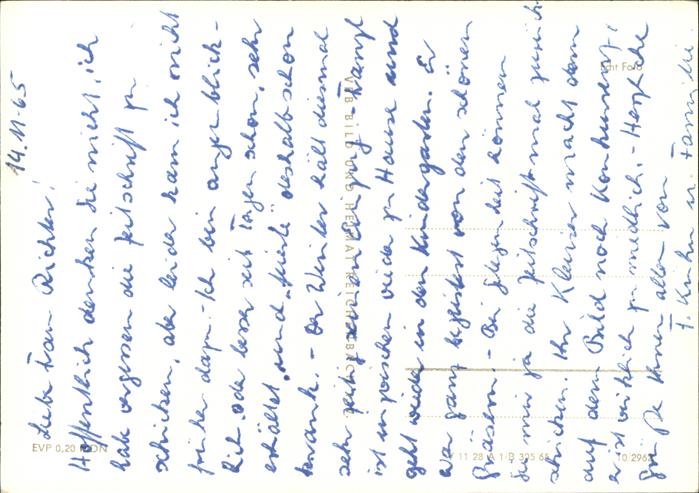 14.11.65
Liebe Frau Richter!
Hoffentlich denken Sie nicht, ich
habe vergessen die Zeitschrift zu
schicken, aber leider kam ich nicht
früher dazu. Ich bin augenblick-
lich, oder besser seit Tagen schon, sehr
erkältet und deshalb schon
krank. - Der Winter hält diesmal
sehr zeitig seinen Einzug. -
ist inzwischen wieder zu Hause und
geht wieder in den Kindergarten. Er
war ganz begeistert von den schönen
Gräsern. - Bei Gelegenheit können
Sie mir ja die Zeitschrift mal zurück-
schicken. Ihr Klauser macht dem
auf dem Bild noch Konkurrenz!
er ist wirklich zu niedlich. - Herzliche
Grüße Ihnen allen von
Familie
Echt Foto
VEB BILD UND HEIMAT REICHENBACH
EVP 0,20 MDN
V 11 28 A 1/B 305 65